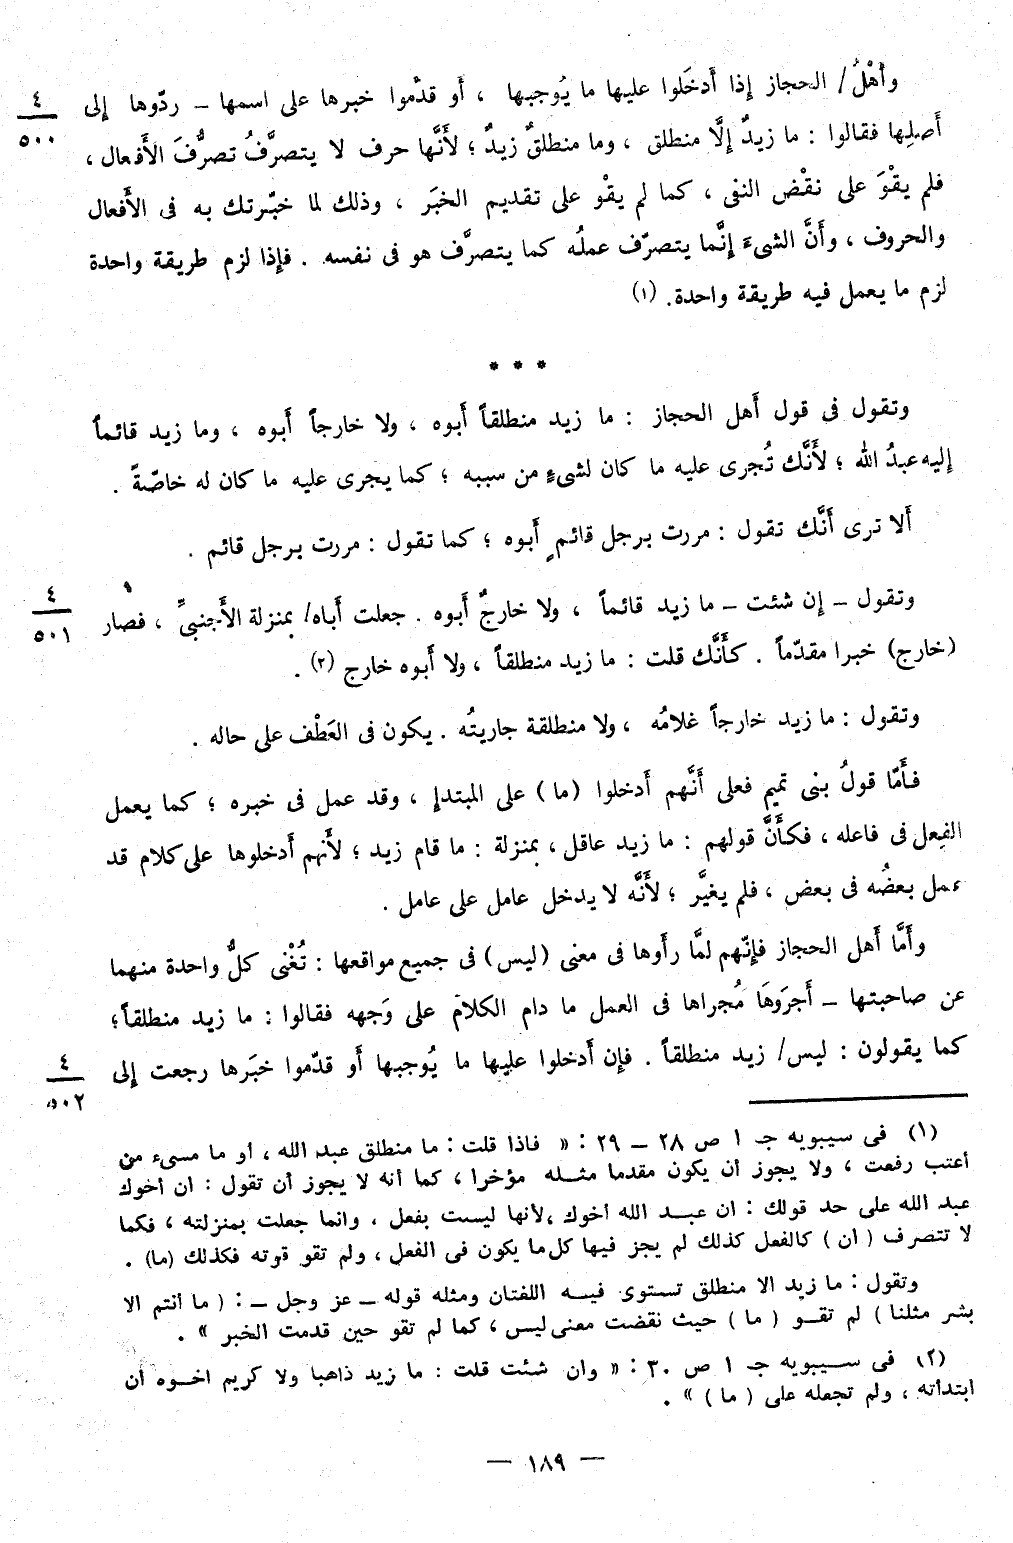 وأَهْلُ/ الحجاز إذا أَدخَلوا عليها ما يُوجبها ، أَو قدَّموا خبرها على اسمها – ردّوها إلى
٤
٥٠٠
أَصلِها فقالوا : ما زيدٌ إلَّا منطلق ، وما منطلقٌ زيدٌ ؛ لأَنَّها حرف لا يتصرَّفُ تصرُّفَ الأَفعال ،
فلم يقْوَ على نقْض النفى ، كما لم يقْو على تقديم الخبَر ، وذلك لما خبّرتك به فى الأَفعال
والحروف ، وأَنَّ الشىءَ إنَّما يتصرّف عملُه كما يتصرَّف هو فى نفسه . فإذا لزم طريقة واحدة
لزم ما يعمل فيه طريقة واحدة. (١)
* * *
وتقول فى قول أَهل الحجاز : ما زيد منطلقاً أَبوه ، ولا خارجاً أَبوه ، وما زيد قائماً
إليه عبدُ الله ؛ لأَنَّك تُجرى عليه ما كان لشىءٍ من سببه ؛ كما يجرى عليه ما كان له خاصّةً .
أَلا ترى أَنَّك تقول : مررت برجل قائمٍ أَبوه ؛ كما تقول : مررت برجل قائم .
وتقول – إن شئت – ما زيد قائماً ، ولا خارجٌ أَبوه . جعلت أَباه/ بمنزلة الأَجنبىِّ ، فصار
٤
٥٠١
(خارج) خبرا مقدّماً . كأَنَّك قلت : ما زيد منطلقاً ، ولا أَبوه خارج (٢) .
وتقول : ما زيد خارجاً غلامُه ، ولا منطلقة جاريتُه . يكون فى العَطْف على حاله .
فأَمّا قولُ بنى تميم فعلى أَنَّهم أَدخلوا (ما) على المبتدإ ، وقد عمل فى خبره ؛ كما يعمل
الفِعل فى فاعله ، فكأَنَّ قولهم : ما زيد عاقل ، بمنزلة : ما قام زيد ؛ لأَنهم أَدخلوها على كلام قد
عمل بعضُه فى بعض ، فلم يغيَّر ؛ لأَنَّه لا يدخل عامل على عامل .
وأَمَّا أَهل الحجاز فإنّهم لمَّا رأَوها فى معنى (ليس) فى جميع مواقعها : تُغْنى كلُّ واحدة منهما
عن صاحبتها – أَجرَوهَا مُجراها فى العمل ما دام الكلام على وَجهه فقالوا : ما زيد منطلقاً؛
كما يقولون : ليس/ زيد منطلقاً . فإن أَدخلوا عليها ما يُوجبها أَو قدّموا خبَرها رجعت إلى
٤
٥٠٢
(١) فى سيبويه جـ ١ ص ٢٨ – ٢٩ : « فاذا قلت : ما منطلق عبد الله ، أو ما مسىء من
أعتب رفعت ، ولا يجوز أن يكون مقدما مثـله مؤخرا ، كما أنه لا يجوز أن تقول : ان أخوك
عبد الله على حد قولك : ان عبـد الله أخوك ،لأنها ليست بفعل ، وانما جعلت بمنزلته ، فكما
لا تتصرف ( ان ) كالفعل كذلك لم يجز فيها كل ما يكون فى الفعل ، ولم تقو قوته فكذلك (ما) .
وتقول : ما زيد الا منطلق تستوى فيـه اللغتان ومثله قوله – عز وجل – : ( ما أنتم الا
بشر مثلنا ) لم تقـو ( ما ) حيث نقضت معنى ليس ، كما لم تقو حين قدمت الخبر » .
(٢) فى سـيبويه جـ ١ ص ٣٠ : « وان شئت قلت : ما زيد ذاهبا ولا كريم اخـوه أن
ابتدأته ، ولم تجعله على ( ما ) » .
— ١٨٩ —